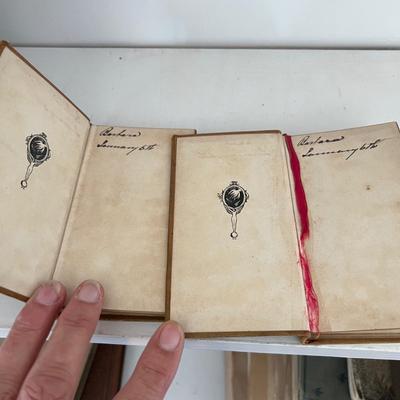 Barbara
January 6th
Barbara
January 6th